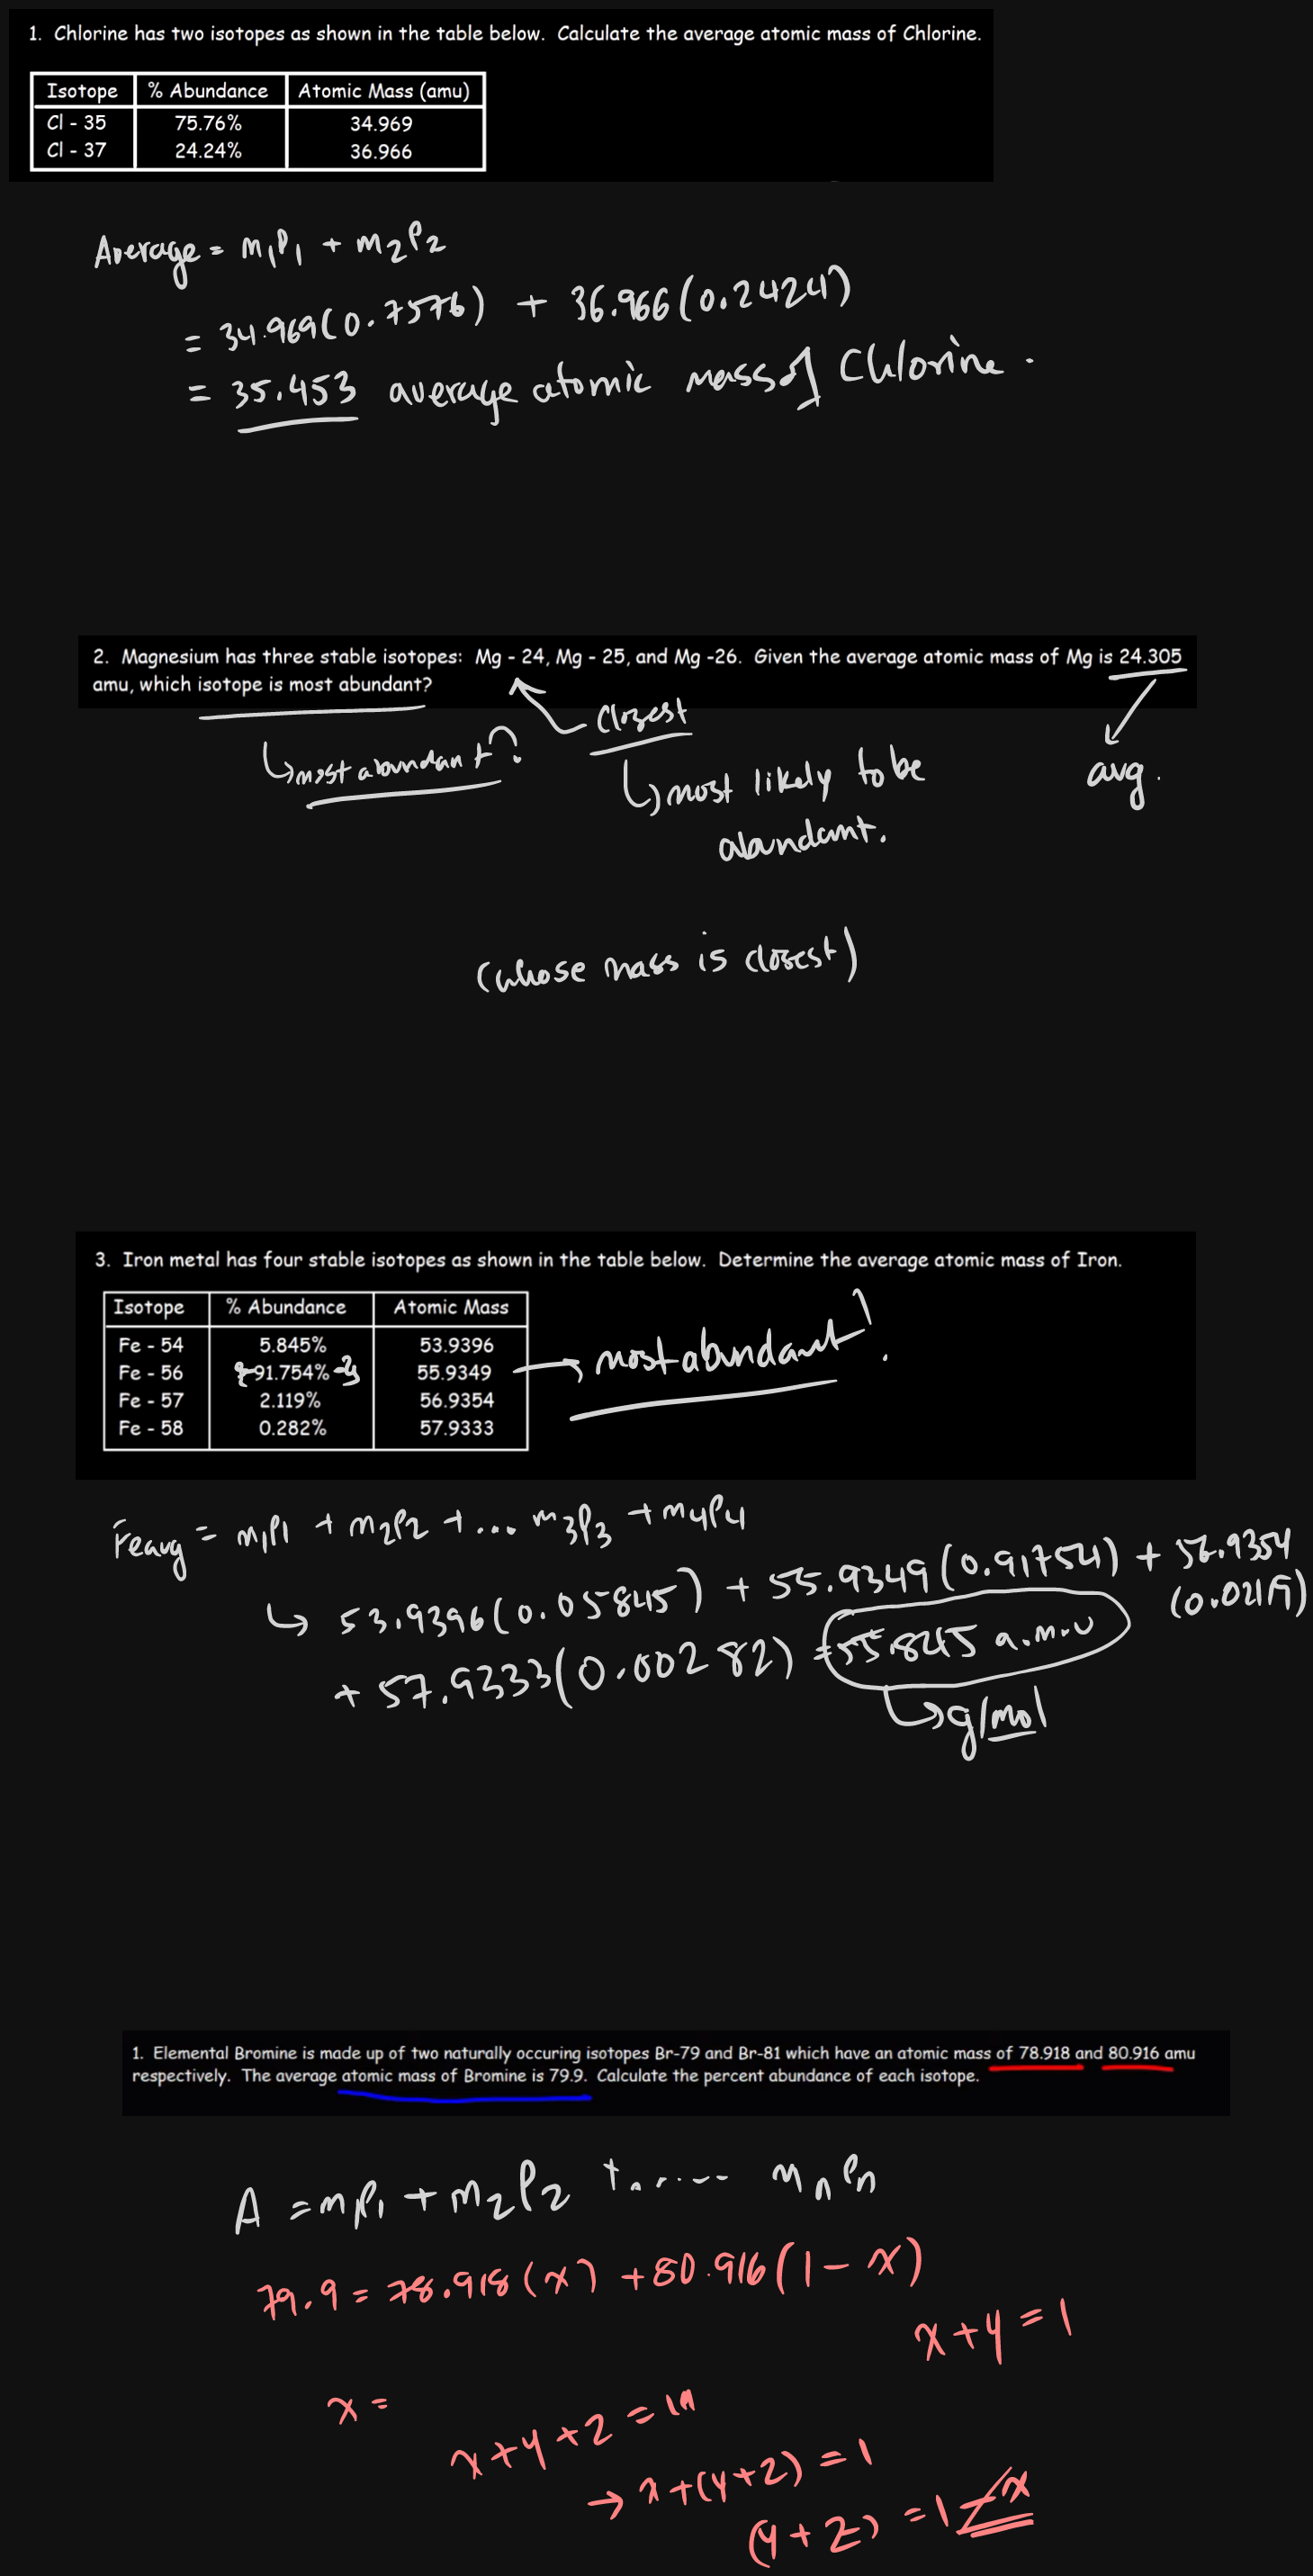 1. Chlorine has two isotopes as shown in the table below. Calculate the average atomic mass of Chlorine.
Isotope % Abundance Atomic Mass (amu)
Cl - 35 75.76% 34.969
Cl - 37 24.24% 36.966
Average = m₁P₁ + m₂P₂
= 34.969(0.7576) + 36.966(0.2424)
= 35.453 average atomic mass of Chlorine.
2. Magnesium has three stable isotopes: Mg - 24, Mg - 25, and Mg -26. Given the average atomic mass of Mg is 24.305
amu, which isotope is most abundant?
Closest
↳ most abundant?
↳ most likely to be
abundant.
avg.
(whose mass is closest)
3. Iron metal has four stable isotopes as shown in the table below. Determine the average atomic mass of Iron.
Isotope % Abundance Atomic Mass
Fe - 54 5.845% 53.9396
Fe - 56 91.754% 55.9349 → most abundant?
Fe - 57 2.119% 56.9354
Fe - 58 0.282% 57.9333
Feavg = m₁P₁ + m₂P₂ + ... m₃P₃ + m₄P₄
↳ 53.9396(0.05845) + 55.9349(0.91754) + 56.9354
(0.02119)
+ 57.9333(0.00282) = 55.845 a.m.u
↳ g/mol
1. Elemental Bromine is made up of two naturally occuring isotopes Br-79 and Br-81 which have an atomic mass of 78.918 and 80.916 amu
respectively. The average atomic mass of Bromine is 79.9. Calculate the percent abundance of each isotope.
A = m₁P₁ + m₂P₂ + ...... mₙPₙ
79.9 = 78.918(x) + 80.916(1 - x)
x + y = 1
x =
x + y + z =
→ x + (y + z) = 1
(y + z) = 1 - x